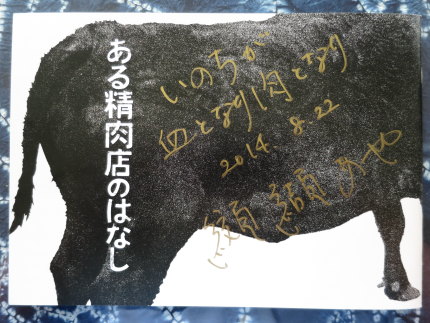 ある精肉店のはなし
いのちが
血となり肉となり
2014 8.22